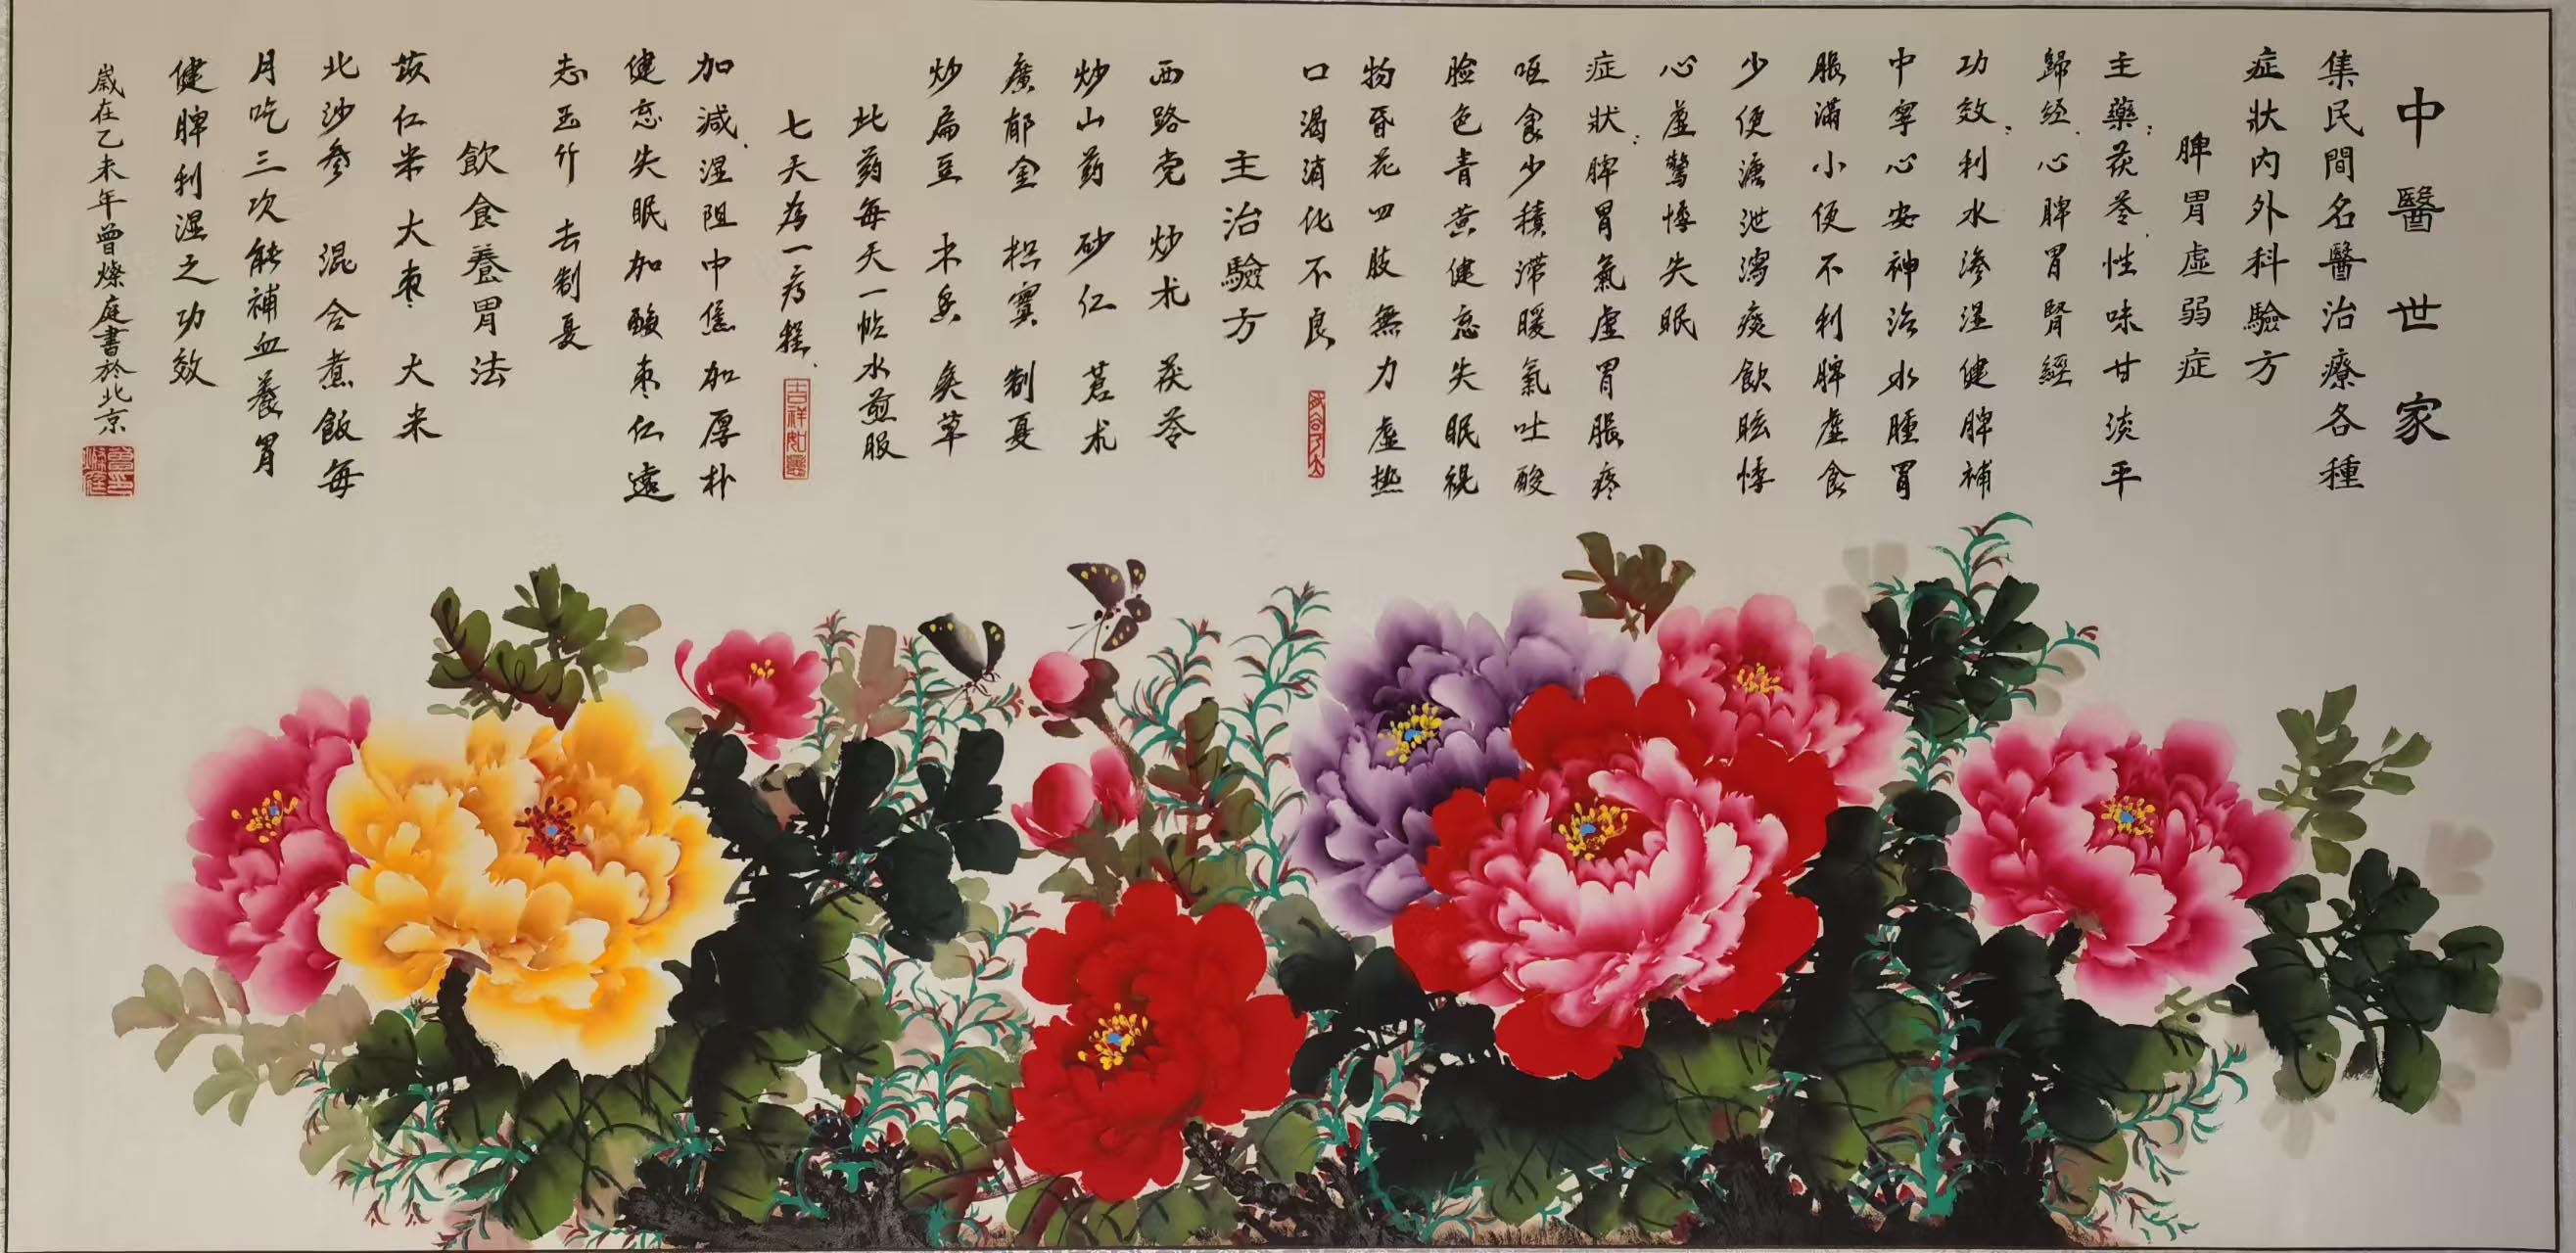 中醫世家
集民間名醫治療各種
症狀内外科驗方
脾胃虛弱症
主藥:茯苓.性味甘淡平
歸经.心脾胃腎經
功效:利水滲湿健脾補
中寧心安神治水腫胃
脹滿小便不利脾虛食
少便溏泄瀉痰飲眩悸
心虛驚悸失眠
症狀:脾胃氣虛胃脹疼
呕食少積滞暖氣吐酸
脸色青黄健忘失眠視
物昏花四肢無力虛热
口渴消化不良
主治驗方
西路党 炒术 茯苓
炒山药 砂仁 苍术
廣郁金 枳實 制夏
炒扁豆 木香 炙草
此药每天一帖水煎服
七天為一疗程.
吉祥如意
加減.湿阻中焦加厚朴
健忘失眠加酸枣仁遠
志玉竹 去制夏
飲食養胃法
苡仁米 大枣 大米
北沙参 混合煮飯每
月吃三次能補血養胃
健脾利湿之功效
歲在乙未年曾燦庭書於北京